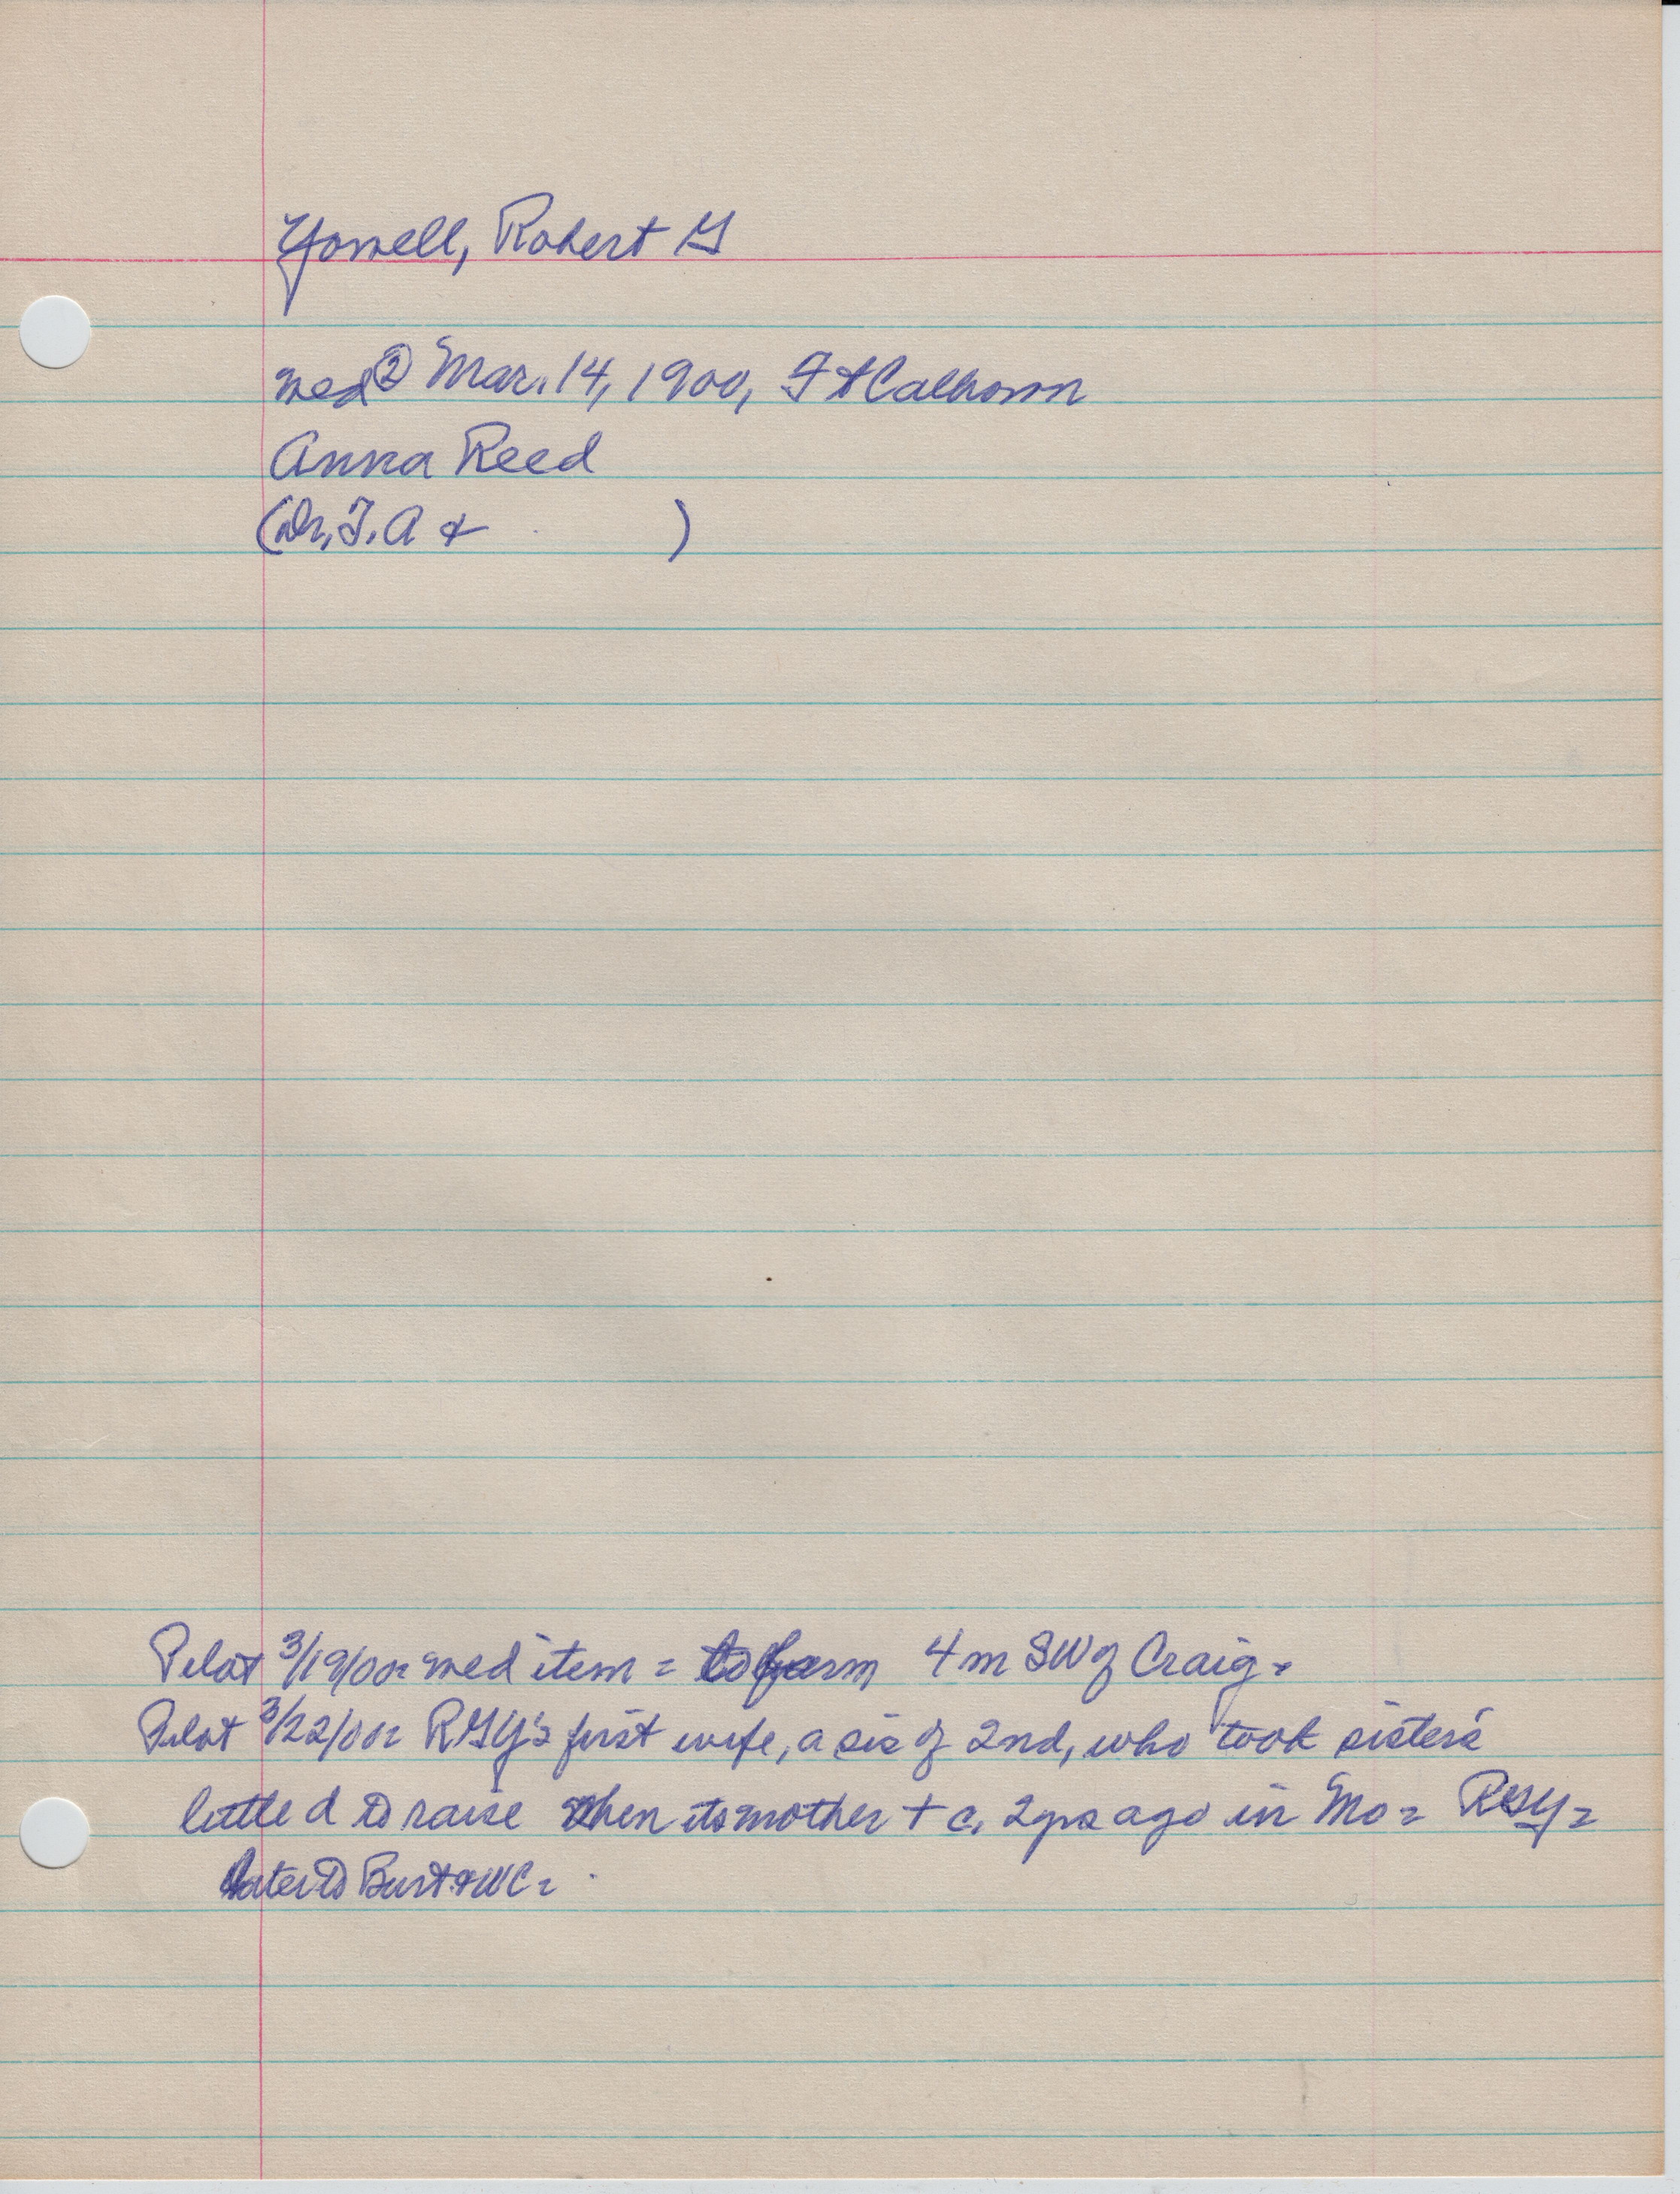 Yowell, Robert G
wed ② Mar. 14, 1900, Ft Calhoun
Anna Reed
(Dr. F. A & )
Pilot 3/19/00= wed item = to farm 4 m SW of Craig=
Pilot 3/22/00= RGY's first wife, a sis of 2nd, who took sister's
little d to raise when its mother + c. 2 yrs ago in Mo= RGY=
later to Burt & WC=